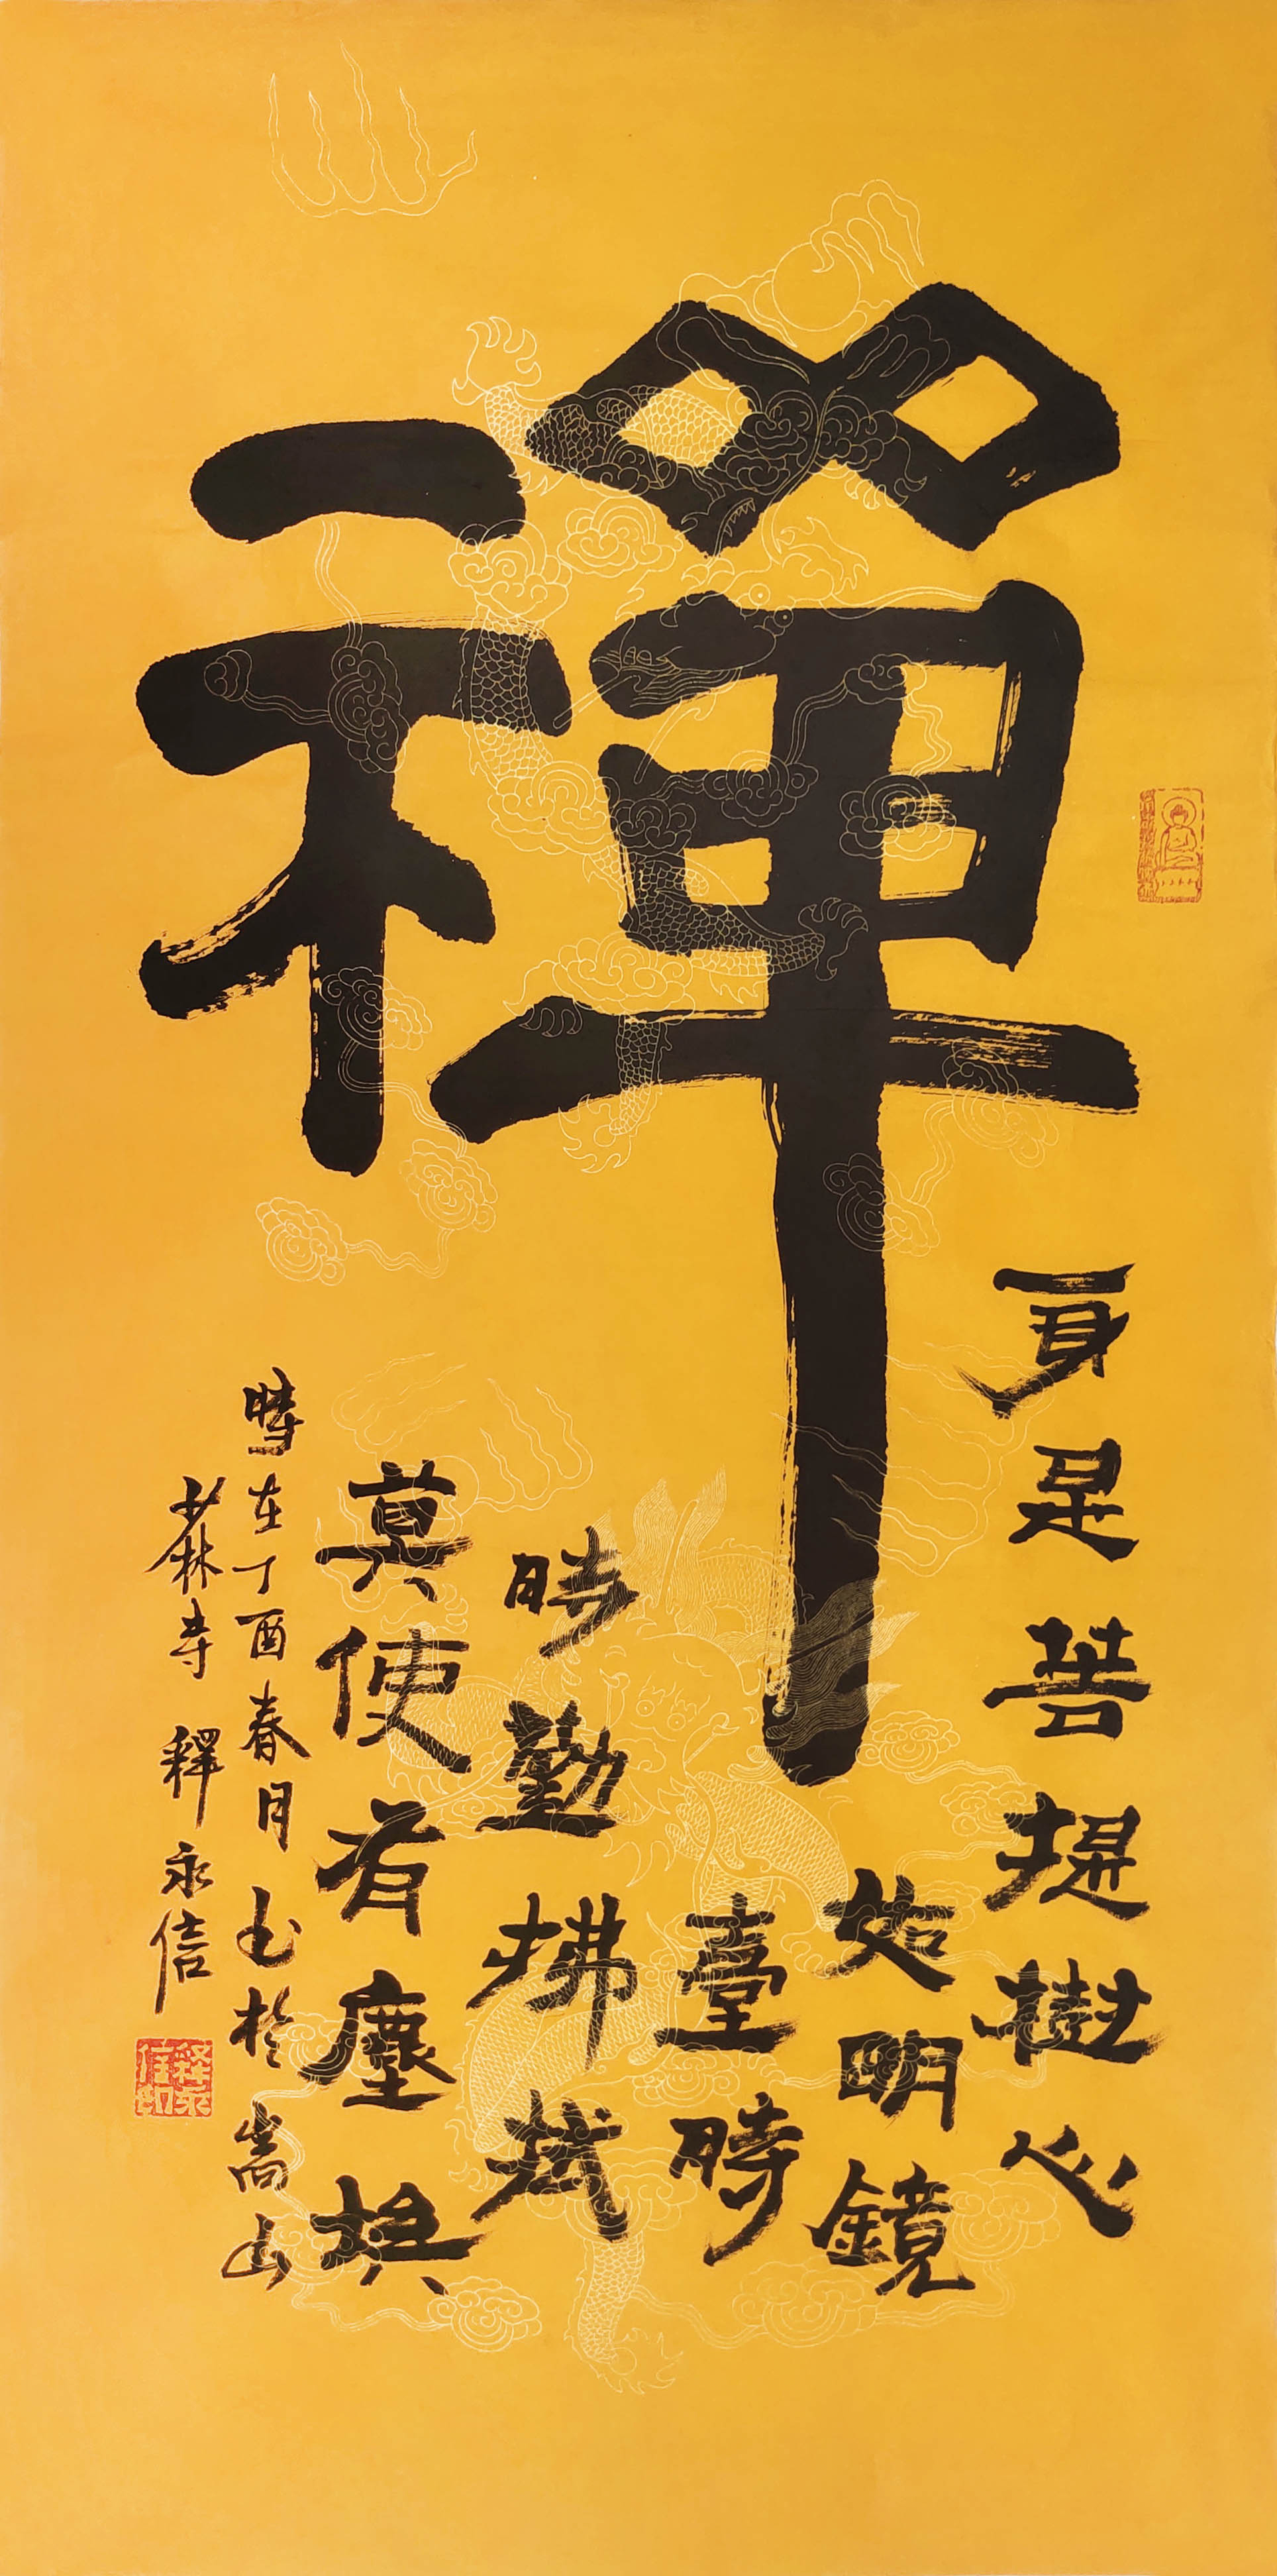 禪
身是菩提樹心
如明鏡
臺時
時勤拂拭
莫使有塵埃
時在丁酉春月书於嵩山
少林寺 釋永信
释永信印